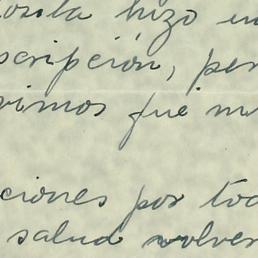 osita hizo un
scripción, per
rimos fue mu
ciones por tod
salud volver